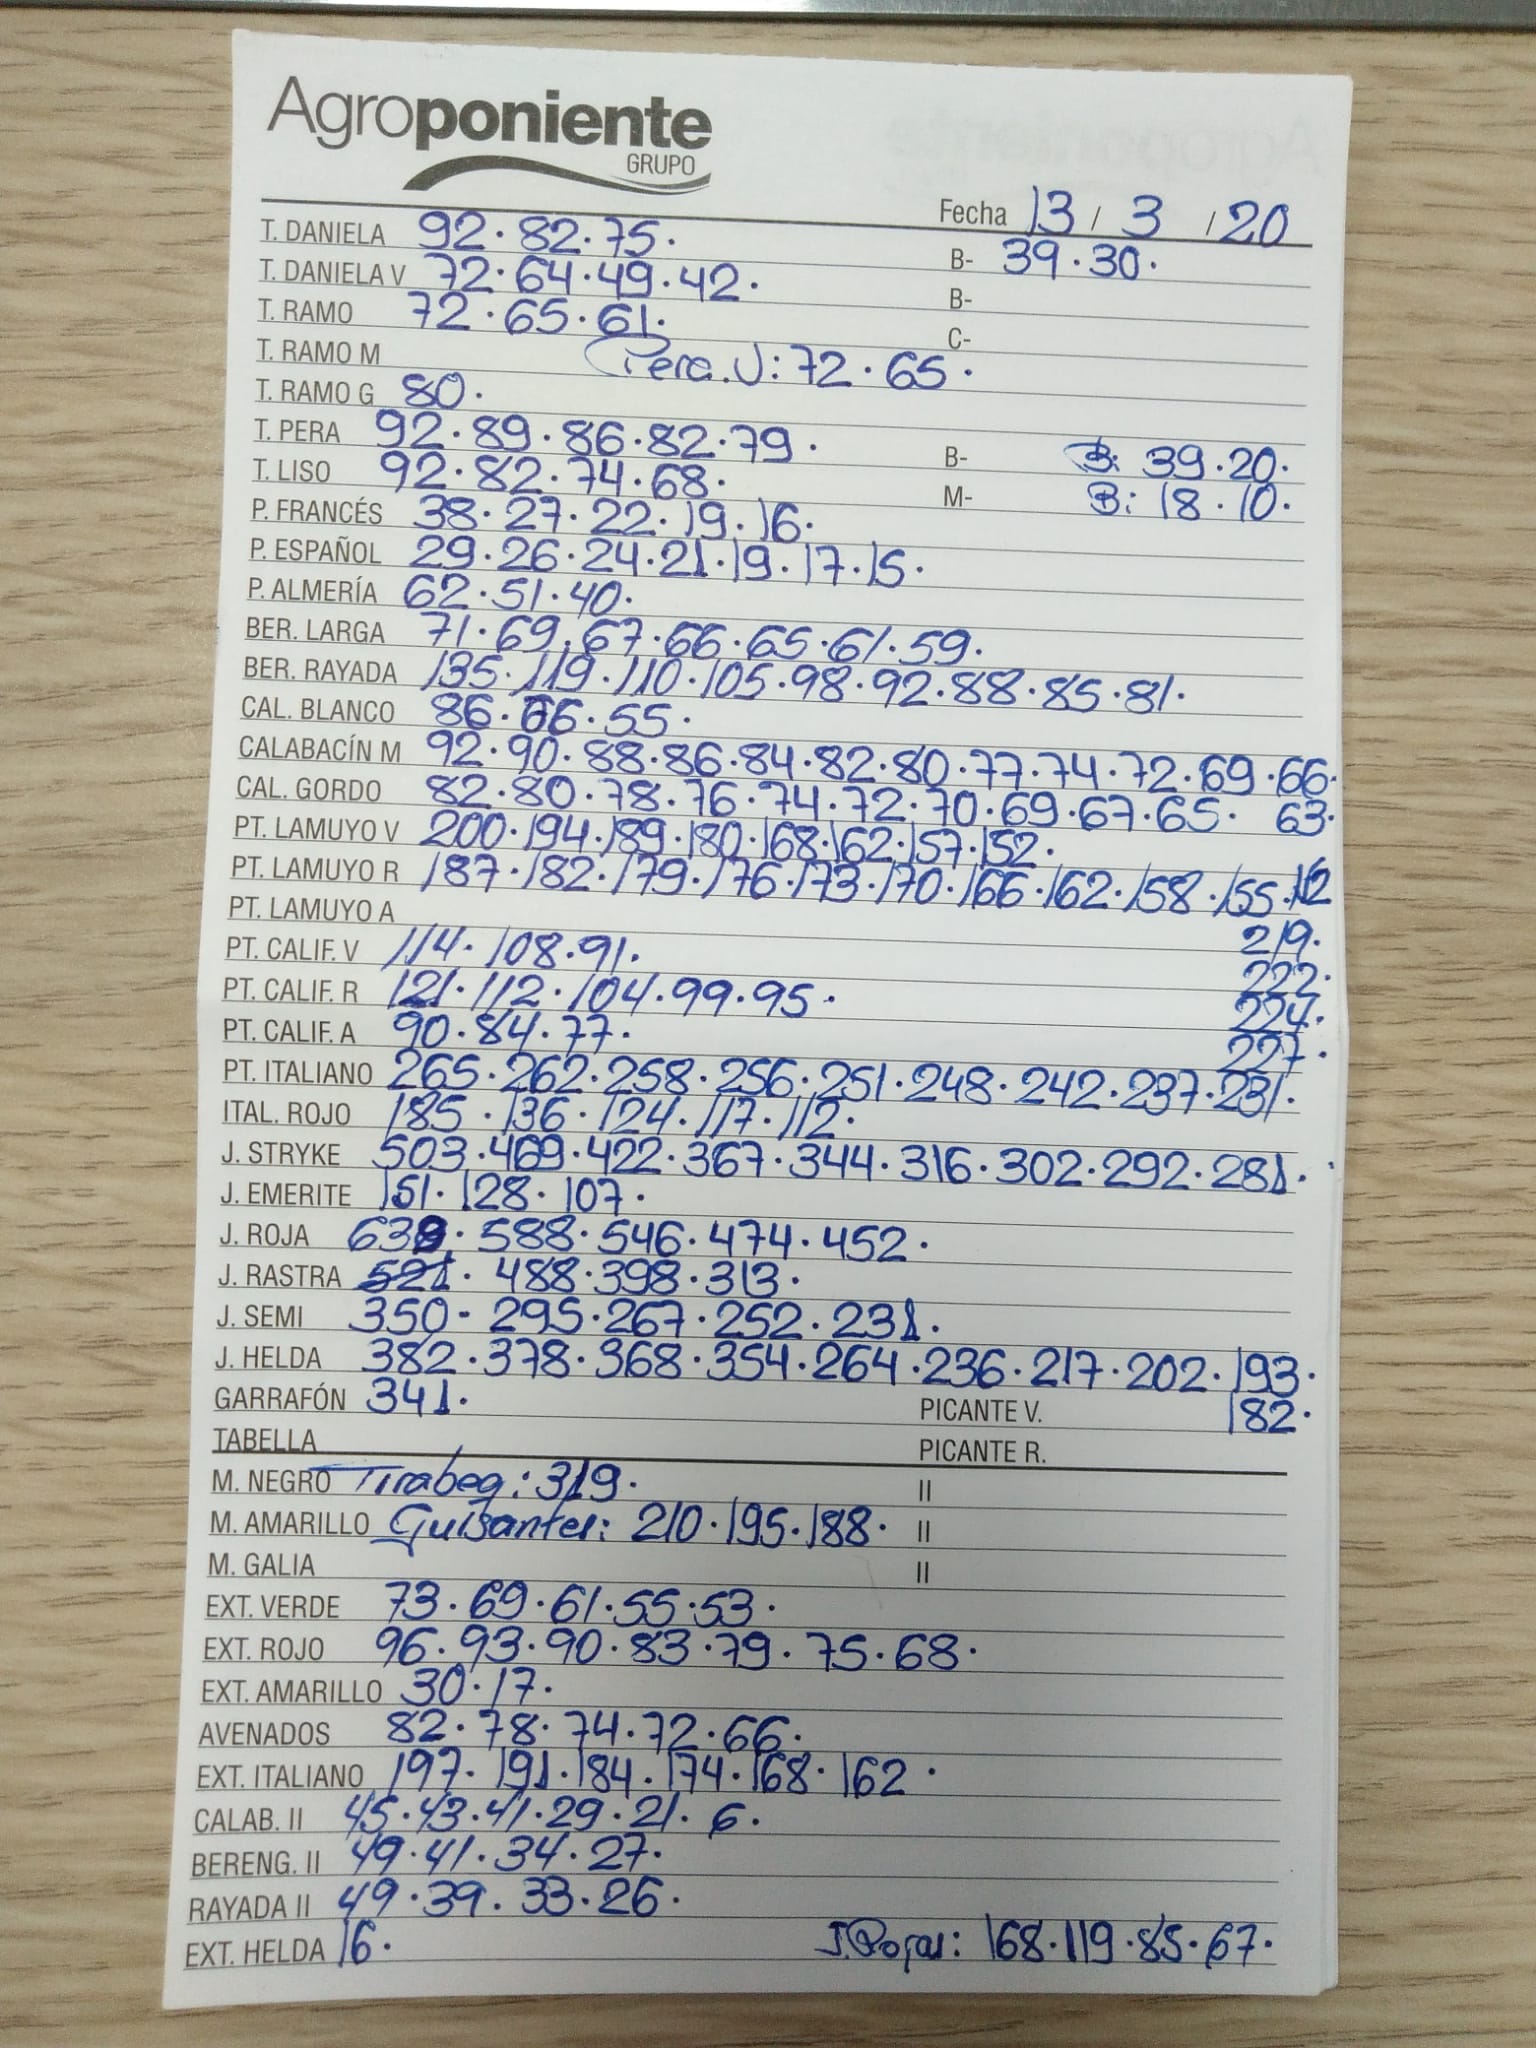 Agroponiente
GRUPO
Fecha 13 / 3 / 20
T. DANIELA 92. 82. 75. B- 39.30.
T. DANIELA V 72. 64. 49. 42. B-
T. RAMO 72. 65. 61. C-
T. RAMO M Pera.V: 72. 65.
T. RAMO G 80.
T. PERA 92. 89. 86. 82. 79. B- B: 39.20.
T. LISO 92. 82. 74. 68. M- B: 18.10.
P. FRANCÉS 38. 27. 22. 19. 16.
P. ESPAÑOL 29. 26. 24. 21. 19. 17. 15.
P. ALMERÍA 62. 51. 40.
BER. LARGA 71. 69. 67. 66. 65. 61. 59.
BER. RAYADA 135. 119. 110. 105. 98. 92. 88. 85. 81.
CAL. BLANCO 86. 66. 55.
CALABACÍN M 92. 90. 88. 86. 84. 82. 80. 77. 74. 72. 69. 66.
CAL. GORDO 82. 80. 78. 76. 74. 72. 70. 69. 67. 65. 63.
PT. LAMUYO V 200. 194. 189. 180. 168. 162. 157. 152.
PT. LAMUYO R 187. 182. 179. 176. 173. 170. 166. 162. 158. 155.
PT. LAMUYO A 219.
PT. CALIF. V 114. 108. 91. 222.
PT. CALIF. R 121. 112. 104. 99. 95. 224.
PT. CALIF. A 90. 84. 77. 227.
PT. ITALIANO 265. 262. 258. 256. 251. 248. 242. 237. 231.
ITAL. ROJO 185. 136. 124. 117. 112.
J. STRYKE 503. 469. 422. 367. 344. 316. 302. 292. 281.
J. EMERITE 151. 128. 107.
J. ROJA 639. 588. 546. 474. 452.
J. RASTRA 521. 488. 398. 313.
J. SEMI 350. 295. 267. 252. 231.
J. HELDA 382. 378. 368. 354. 264. 236. 217. 202. 193.
GARRAFÓN 341. PICANTE V. 182.
TABELLA PICANTE R.
M. NEGRO Tirabeq: 319. II
M. AMARILLO Guisantes: 210. 195. 188. II
M. GALIA II
EXT. VERDE 73. 69. 61. 55. 53.
EXT. ROJO 96. 93. 90. 83. 79. 75. 68.
EXT. AMARILLO 30. 17.
AVENADOS 82. 78. 74. 72. 66.
EXT. ITALIANO 197. 191. 184. 174. 168. 162.
CALAB. II 45. 43. 41. 29. 21. 6.
BERENG. II 49. 41. 34. 27.
RAYADA II 49. 39. 33. 26.
EXT. HELDA 16. J.Rojas: 168. 119. 85. 67.